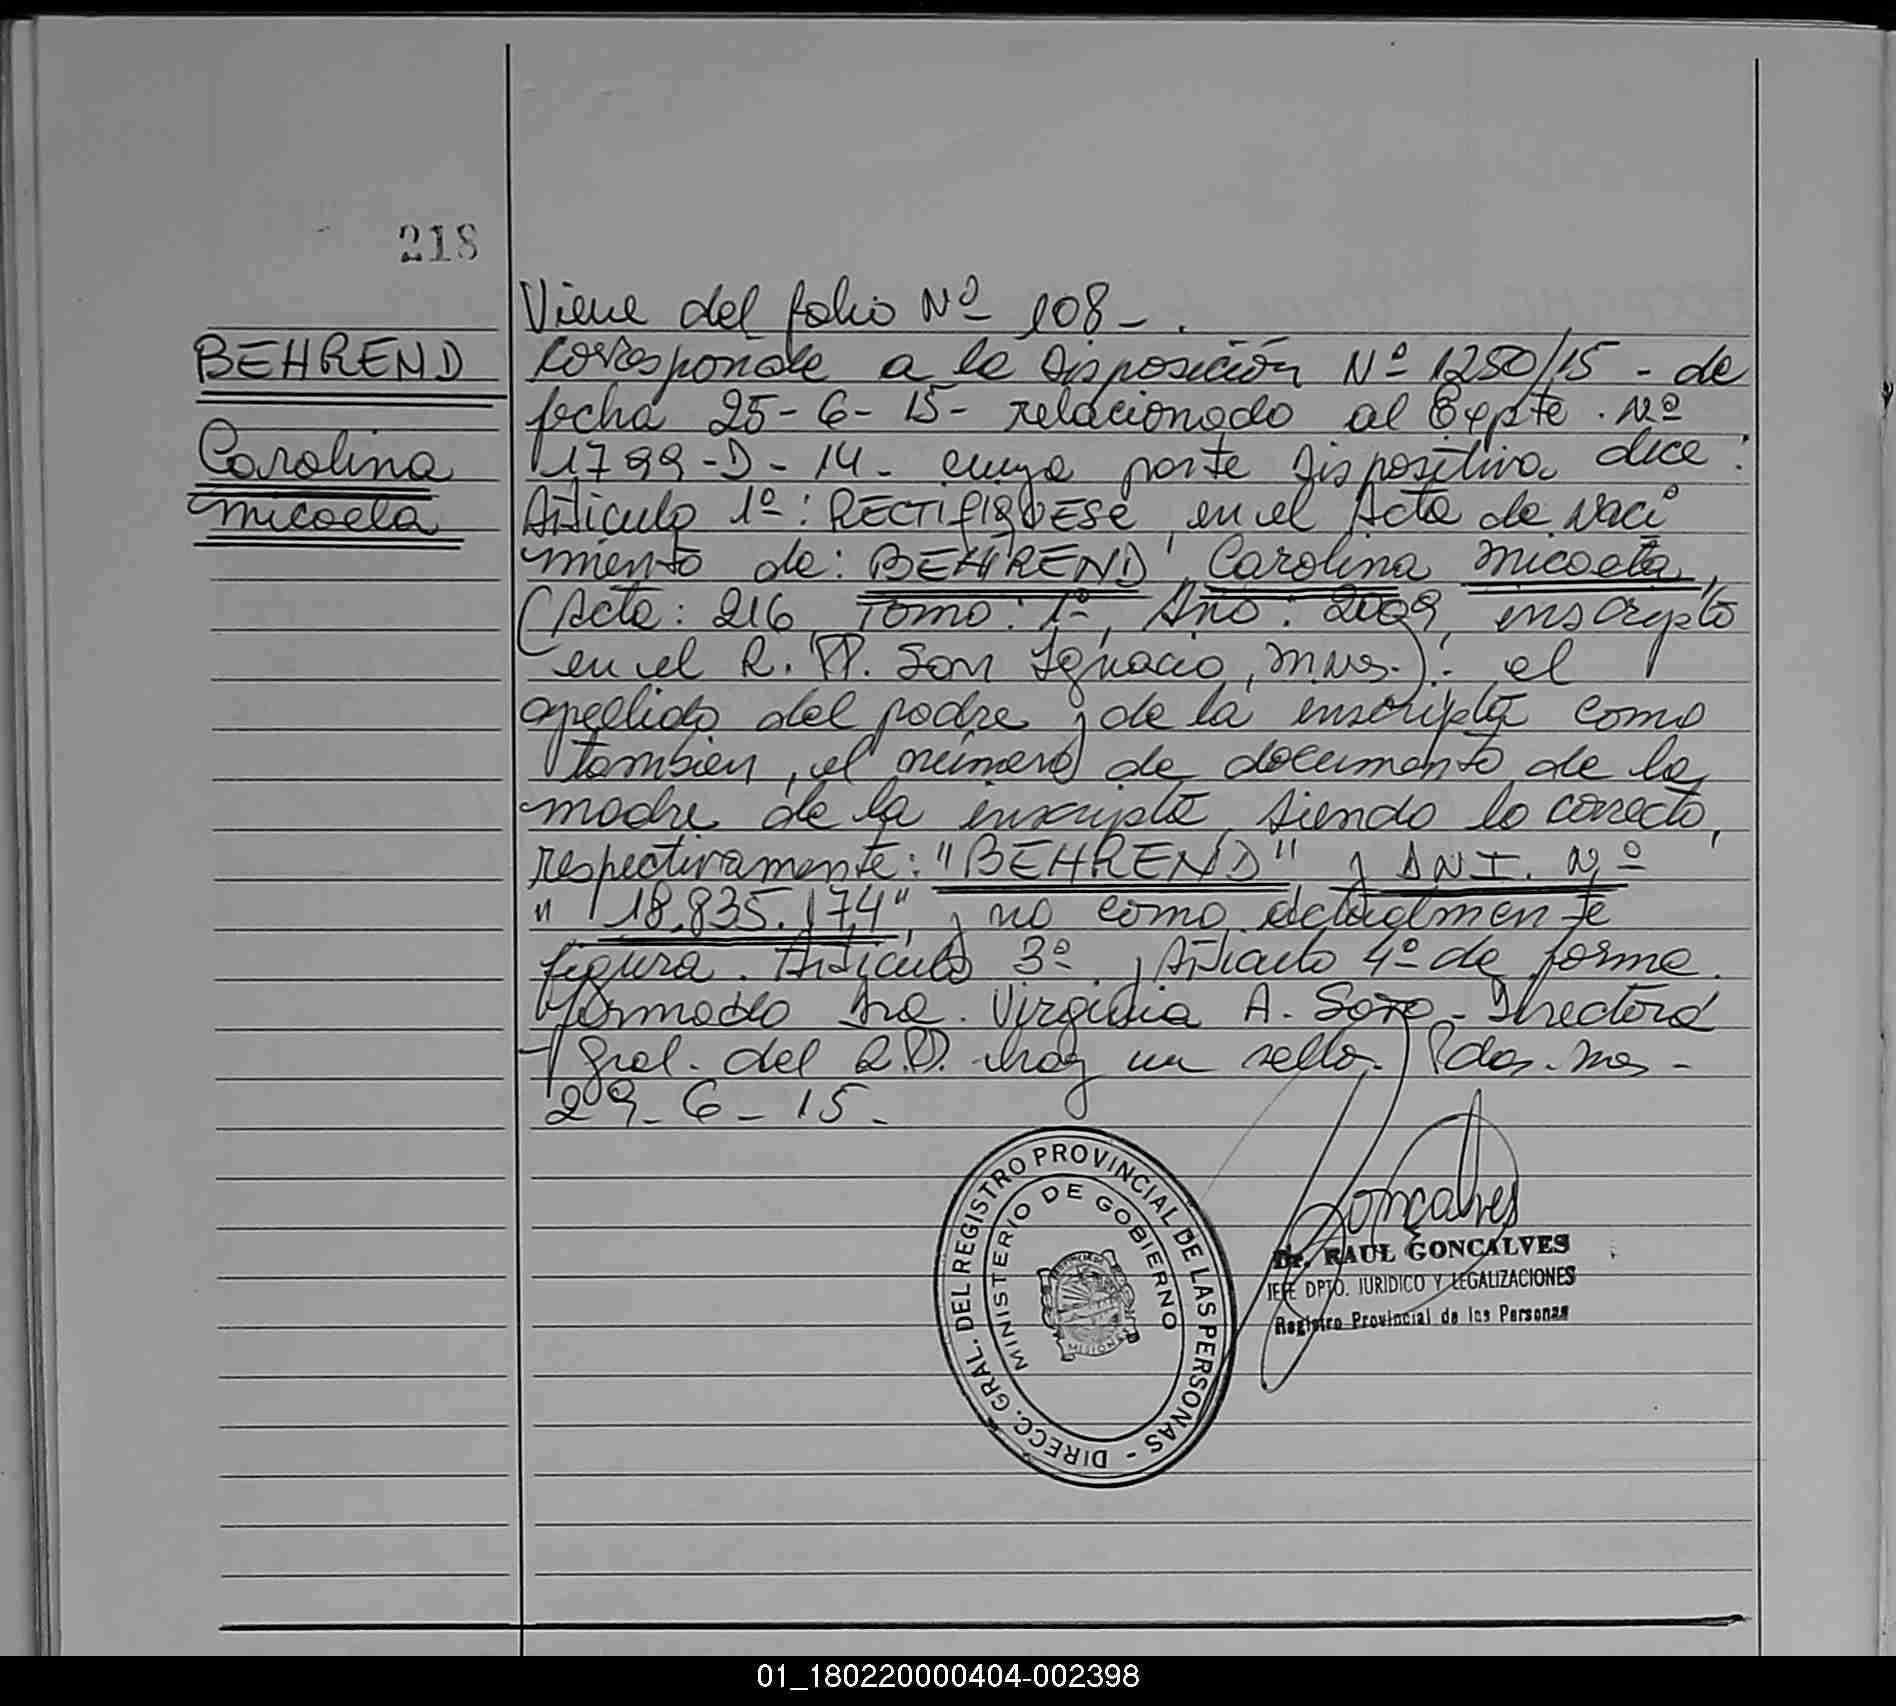 218
Viene del folio Nº 108-.
BEHREND
Corresponde a la Disposición Nº 1250/15 - de
fecha 25-6-15- relacionado al Expte. Nº
Carolina
1799-D-14- cuya parte dispositiva dice:
micaela
Artículo 1º: RECTIFIQUESE, en el Acta de Naci
miento de: BEHREND, Carolina micaela,
(Acta: 216, Tomo: 1º, Año: 2009, inscripto
en el R.PP. San Ignacio, Mnes.): el
apellido del padre y de la inscripta como
también, el número de documento de la
madre de la inscripta, siendo lo correcto,
respectivamente: "BEHREND" y DNI. Nº
"18.835.174", y no como actualmente
figura. Artículo 3º y Artículo 4º de forma.
firmado Dra. Virginia A. Soto - Directora
Gral. del R.P. hay un sello. Pdas. Mnes -
29-6-15-
DIRECC. GRAL. DEL REGISTRO PROVINCIAL DE LAS PERSONAS -
MINISTERIO DE GOBIERNO
MISIONES
Goncalves
Dr. RAUL GONCALVES
JEFE DPTO. JURIDICO Y LEGALIZACIONES
Registro Provincial de las Personas
01_180220000404-002398